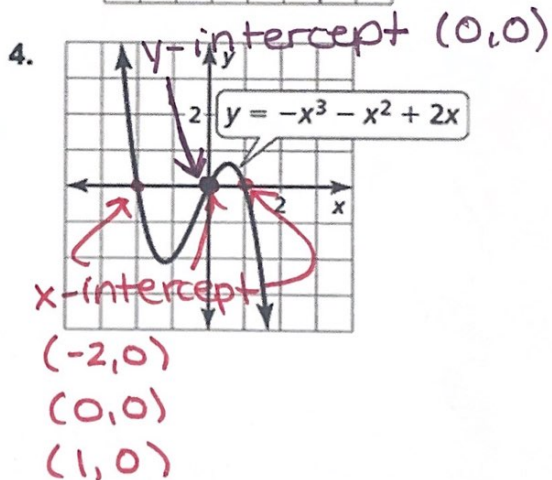 4.
y-intercept (0,0)
y
2
y = −x³ − x² + 2x
2
x
x-intercept
(-2,0)
(0,0)
(1,0)